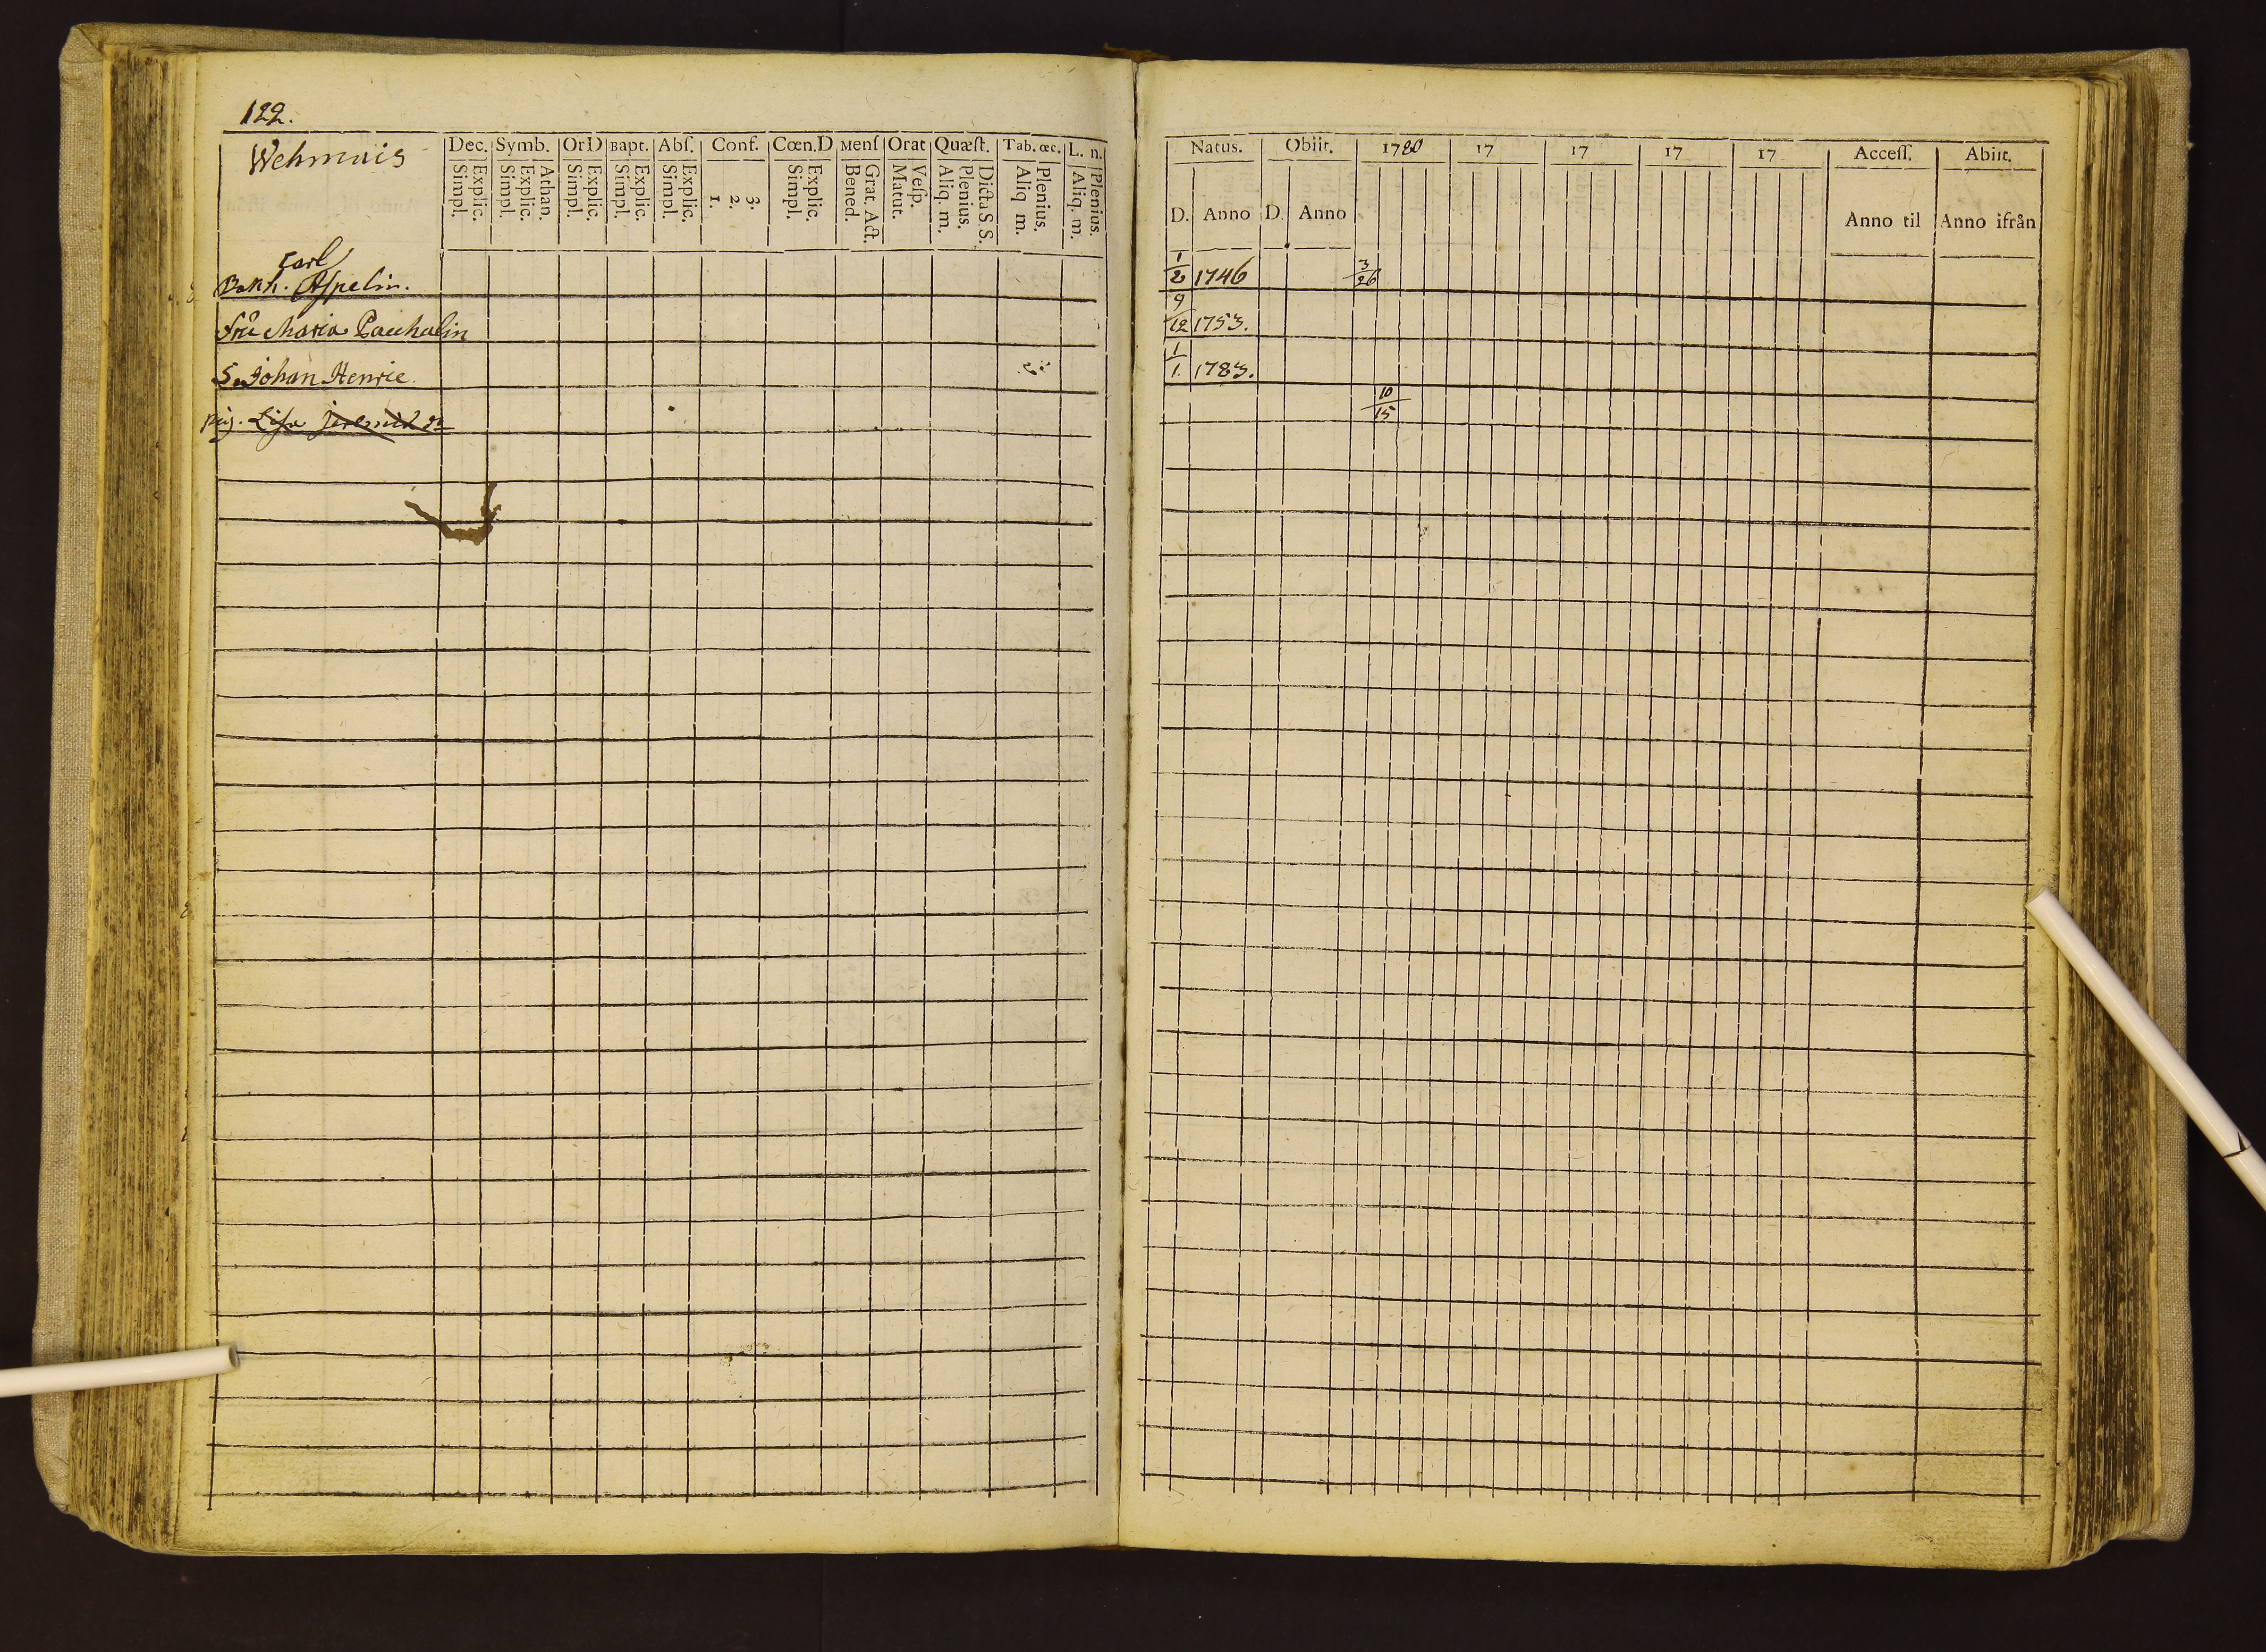 122.
Wehmais
Dec. Symb. OrD Bapt. Abſ. Conf. Cœn.D Menſ Orat Quæſt. Tab. œc. L. n.
Simpl. Explic. Simpl. Explic. Athan. Simpl. Explic. Simpl. Explic. Simpl. Explic. 1. 2. 3. Simpl. Explic. Bened. Grat. Act. Matut. Veſp. Aliq. m. Plenius. Dicta S S. Aliq m. Plenius. Aliq. m. Plenius.
Carl
Bokh. Aſpelin.
Fru Maria Pacchalin
S. Johan Henric
Pig. Liſa
Natus. Obiit. 1780 17 17 17 17 Acceſſ. Abiit.
D. Anno D. Anno Anno til Anno ifrån
1/2 1746 3/26
9/12 1753.
1/1. 1783.
10/15